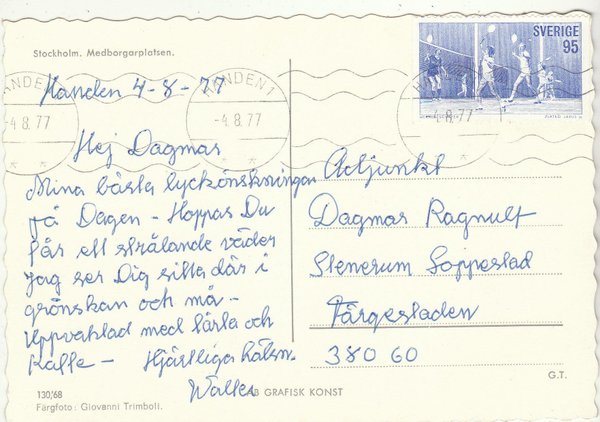 Stockholm. Medborgarplatsen.
SVERIGE
95
HANDEN 1
-4.8.77
Handen 4-8-77
Hej Dagmar
Mina bästa lyckönskningar
på Dagen - Hoppas Du
får ett strålande väder
jag ser Dig sitta där i
grönskan och må -
Uppvaktad med tårta och
Kaffe - Hjärtliga hälsn.
Walter
Adjunkt
Dagmar Ragnult
Stenerum Soppestad
Färgestaden
380 60
G.T.
130/68
AB GRAFISK KONST
Färgfoto: Giovanni Trimboli.